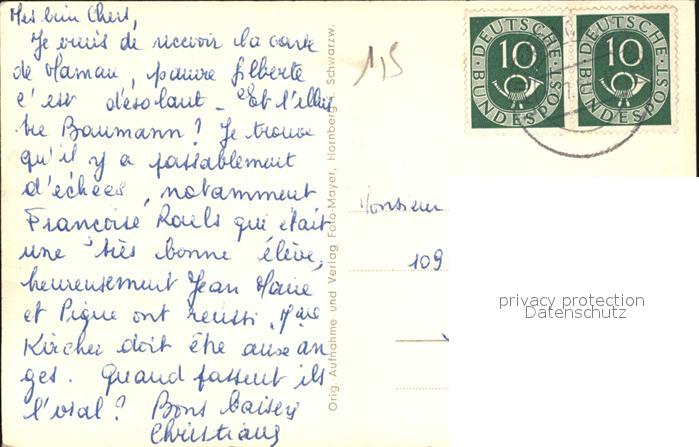 Mes bien Chers,
Je viens de recevoir la carte
de Maman, pauvre Gilberte
c'est désolant - Et l'illus
tre Baumann? Je trouve
qu'il y a passablement
d'échecs, notamment
Françoise Roels qui était
une très bonne élève,
heureusement Jean Marie
et Pique ont réussi. Mme
Kircher doit être aux an
ges. Quand passent ils
l'oral? Bons baisers
Christiane
Orig.-Aufnahme und Verlag Foto-Mayer, Hornberg i. Schwarzw.
115
DEUTSCHE BUNDESPOST 10
DEUTSCHE BUNDESPOST 10
Monsieur
109
privacy protection
Datenschutz